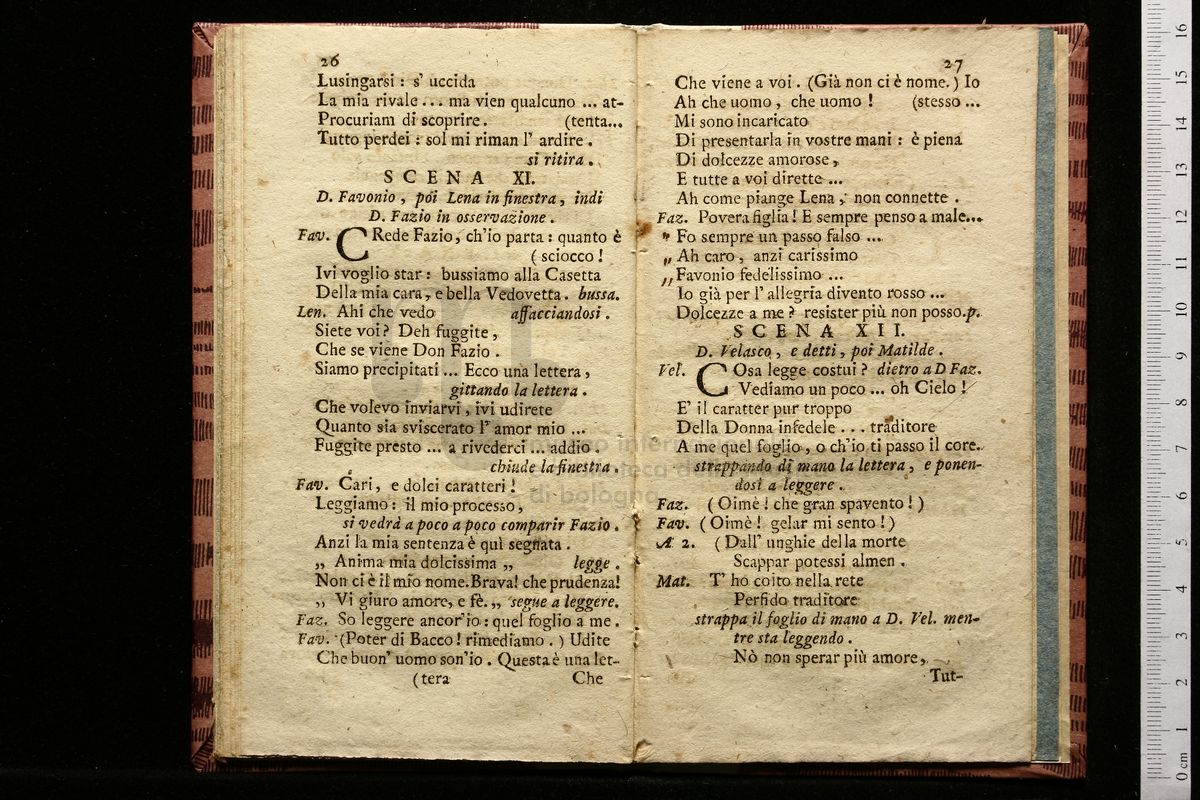 26
Lusingarsi : s' uccida
La mia rivale ... ma vien qualcuno ... at-
Procuriam di scoprire . (tenta...
Tutto perdei : sol mi riman l' ardire .
si ritira .
SCENA XI.
D. Favonio , poi Lena in finestra , indi
D. Fazio in osservazione .
Fav. CRede Fazio, ch'io parta : quanto è
( sciocco !
Ivi voglio star : bussiamo alla Casetta
Della mia cara, e bella Vedovetta . bussa.
Len. Ahi che vedo affacciandosi .
Siete voi ? Deh fuggite ,
Che se viene Don Fazio .
Siamo precipitati ... Ecco una lettera ,
gittando la lettera .
Che volevo inviarvi , ivi udirete
Quanto sia sviscerato l' amor mio ...
Fuggite presto ... a rivederci ... addio .
chiude la finestra .
Fav. Cari, e dolci caratteri !
Leggiamo : il mio processo ,
si vedrà a poco a poco comparir Fazio .
Anzi la mia sentenza è quì segnata .
„ Anima mia dolcissima „ legge .
Non ci è il mio nome. Brava! che prudenza!
„ Vi giuro amore, e fè. „ segue a leggere.
Faz. So leggere ancor'io : quel foglio a me .
Fav. (Poter di Bacco ! rimediamo . ) Udite
Che buon' uomo son'io . Questa è una let-
(tera Che
27
Che viene a voi . (Già non ci è nome. ) Io
Ah che uomo , che uomo ! (stesso ...
Mi sono incaricato
Di presentarla in vostre mani : è piena
Di dolcezze amorose ,
E tutte a voi dirette ...
Ah come piange Lena , non connette .
Faz. Povera figlia ! E sempre penso a male...
„ Fo sempre un passo falso ...
„ Ah caro , anzi carissimo
„ Favonio fedelissimo ...
Io già per l' allegria divento rosso ...
Dolcezze a me ? resister più non posso.p.
SCENA XII.
D. Velasco , e detti , poi Matilde .
Vel. COsa legge costui ? dietro a D Faz.
Vediamo un poco ... oh Cielo !
E' il caratter pur troppo
Della Donna infedele . . . traditore
A me quel foglio , o ch'io ti passo il core.
strappando di mano la lettera , e ponen-
dosi a leggere .
Faz. ( Oimè ! che gran spavento ! )
Fav. ( Oimè ! gelar mi sento ! )
A 2. ( Dall' unghie della morte
Scappar potessi almen .
Mat. T' ho colto nella rete
Perfido traditore
strappa il foglio di mano a D. Vel. men-
tre sta leggendo .
Nò non sperar più amore,
Tut-